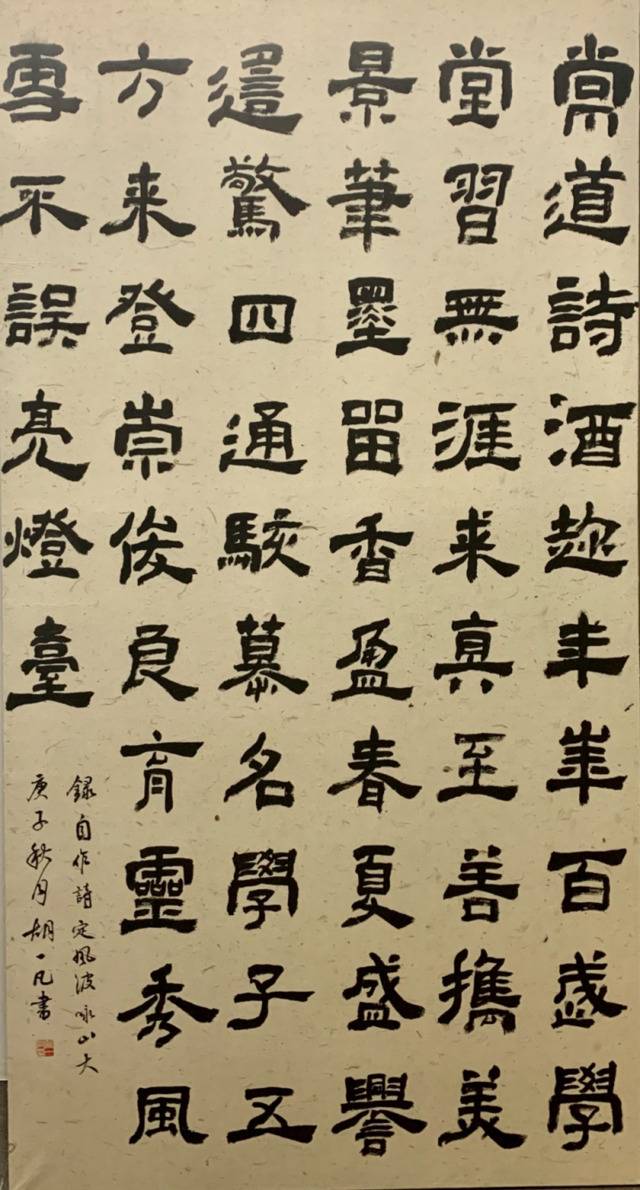 常道詩酒趁年華百歲學
堂習無涯求真至善攜美
景筆墨留香盈春夏盛譽
還驚四通駭慕名學子五
方来登崇俊良育靈秀風
雪不誤亮燈臺
録自作詩定風波咏山大
庚子秋月胡一凡書